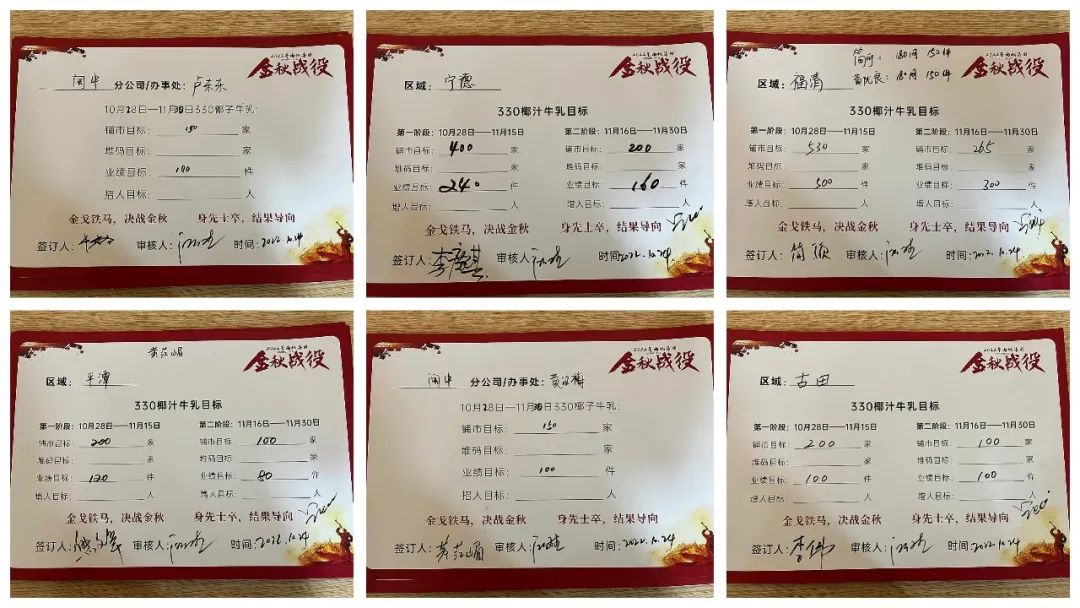 2022年南优集团
金秋战役
闽中 分公司/办事处：
10月28日—11月30日330椰子牛乳：
铺市目标：150家
堆码目标：家
业绩目标：100件
招人目标：人
金戈铁马，决战金秋 身先士卒，结果导向
签订人： 审核人： 时间：2022.10.24
金秋战役
区域：宁德
330椰汁牛乳目标
第一阶段：10月28日——11月15日 第二阶段：11月16日——11月30日
铺市目标：400家 铺市目标：200家
堆码目标：家 堆码目标：家
业绩目标：240件 业绩目标：160件
增人目标：人 增人目标：人
金戈铁马，决战金秋 身先士卒，结果导向
签订人： 审核人： 时间：2022.10.24
金秋战役
区域：福清
330椰汁牛乳目标
第一阶段：10月28日——11月15日 第二阶段：11月16日——11月30日
铺市目标：530家 铺市目标：265家
堆码目标：家 堆码目标：家
业绩目标：500件 业绩目标：300件
增人目标：人 增人目标：人
金戈铁马，决战金秋 身先士卒，结果导向
签订人： 审核人： 时间：2022.10.24
金秋战役
区域：平潭
330椰汁牛乳目标
第一阶段：10月28日——11月15日 第二阶段：11月16日——11月30日
铺市目标：200家 铺市目标：100家
堆码目标：家 堆码目标：家
业绩目标：120件 业绩目标：80件
增人目标：人 增人目标：人
金戈铁马，决战金秋 身先士卒，结果导向
签订人： 审核人： 时间：2022.10.24
金秋战役
闽中 分公司/办事处：
10月28日—11月30日330椰子牛乳：
铺市目标：150家
堆码目标：家
业绩目标：100件
招人目标：人
金戈铁马，决战金秋 身先士卒，结果导向
签订人： 审核人： 时间：2022.10.24
金秋战役
区域：古田
330椰汁牛乳目标
第一阶段：10月28日——11月15日 第二阶段：11月16日——11月30日
铺市目标：200家 铺市目标：100家
堆码目标：家 堆码目标：家
业绩目标：100件 业绩目标：100件
增人目标：人 增人目标：人
金戈铁马，决战金秋 身先士卒，结果导向
签订人：李伟 审核人： 时间：2022.10.24